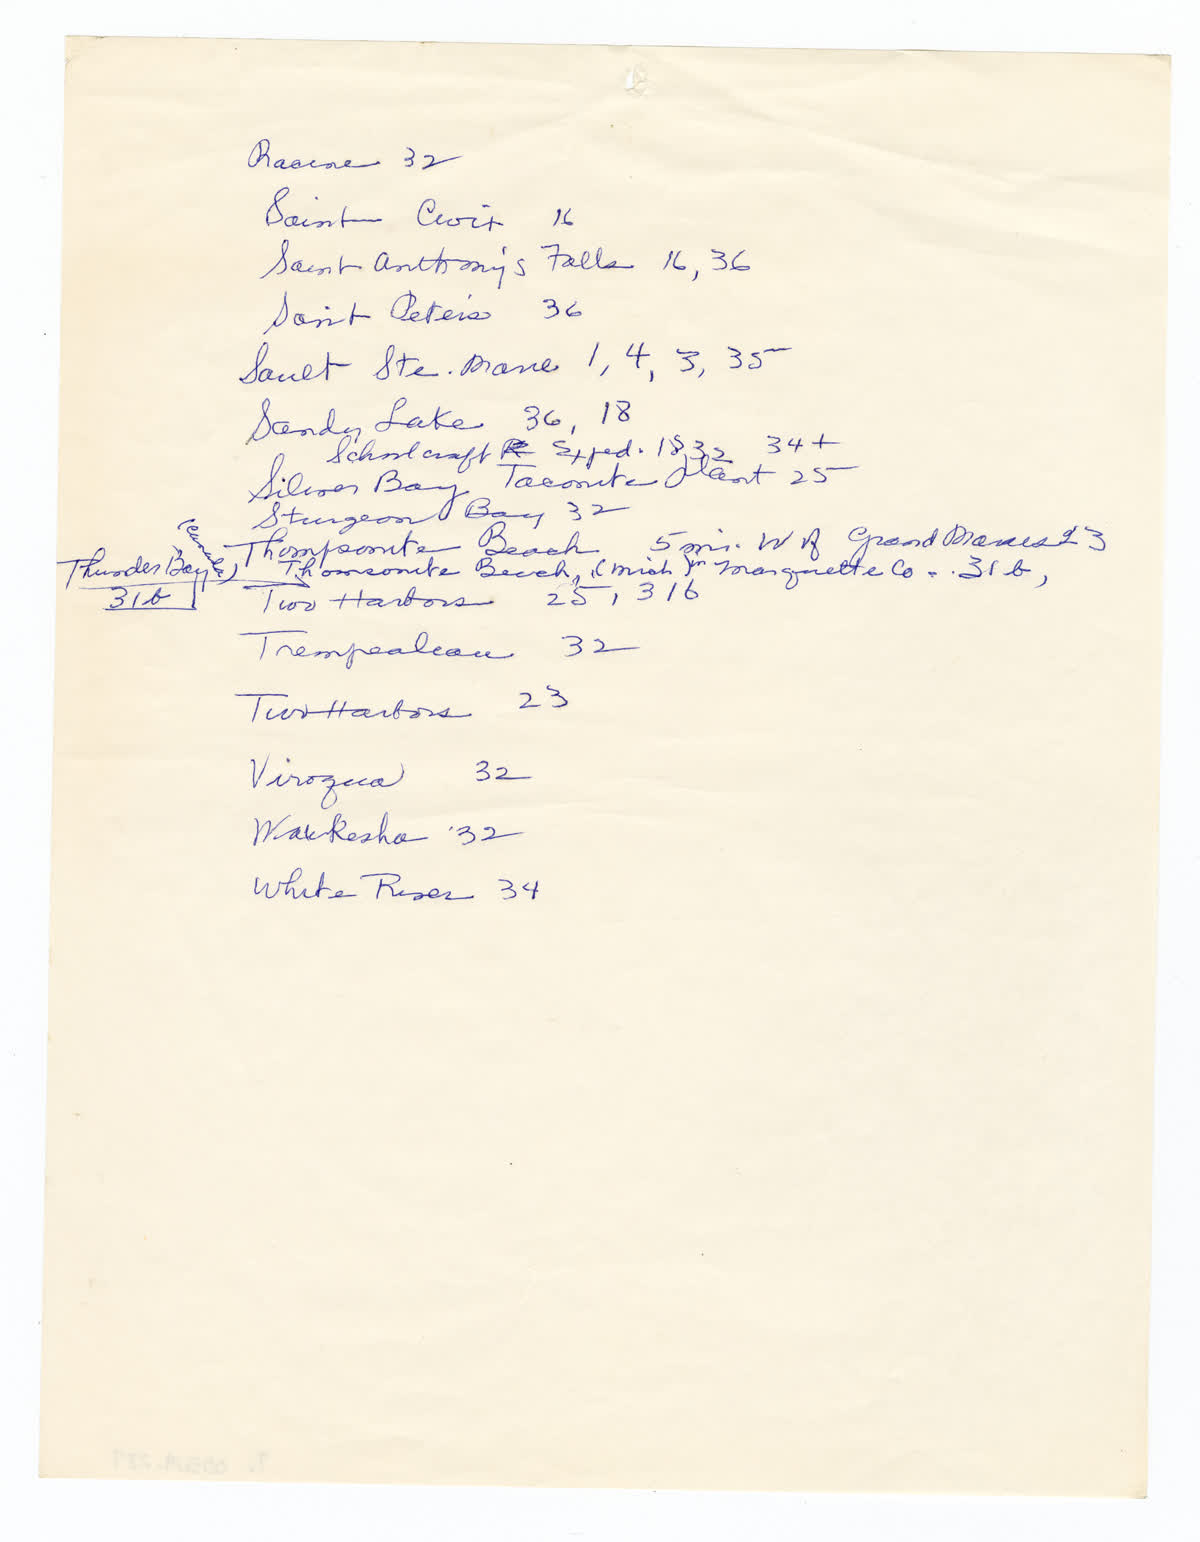 Racine 32
Saint Croix 16
Saint Anthony's Falls 16, 36
Saint Peters 36
Sault Ste. Marie 1, 4, 3, 35
Sandy Lake 36, 18
Schoolcraft Exped. 1832 34+
Silver Bay Taconite Plant 25
Sturgeon Bay 32
Thompsonite Beach 5 mi. W of Grand Marais 23
Thunder Bay (Canada)
31b
Thomsonite Beach, (Mich) in Marquette Co. 31b,
Two Harbors 25, 31b
Trempealeau 32
Two Harbors 23
Viroqua 32
Waukesha 32
White River 34